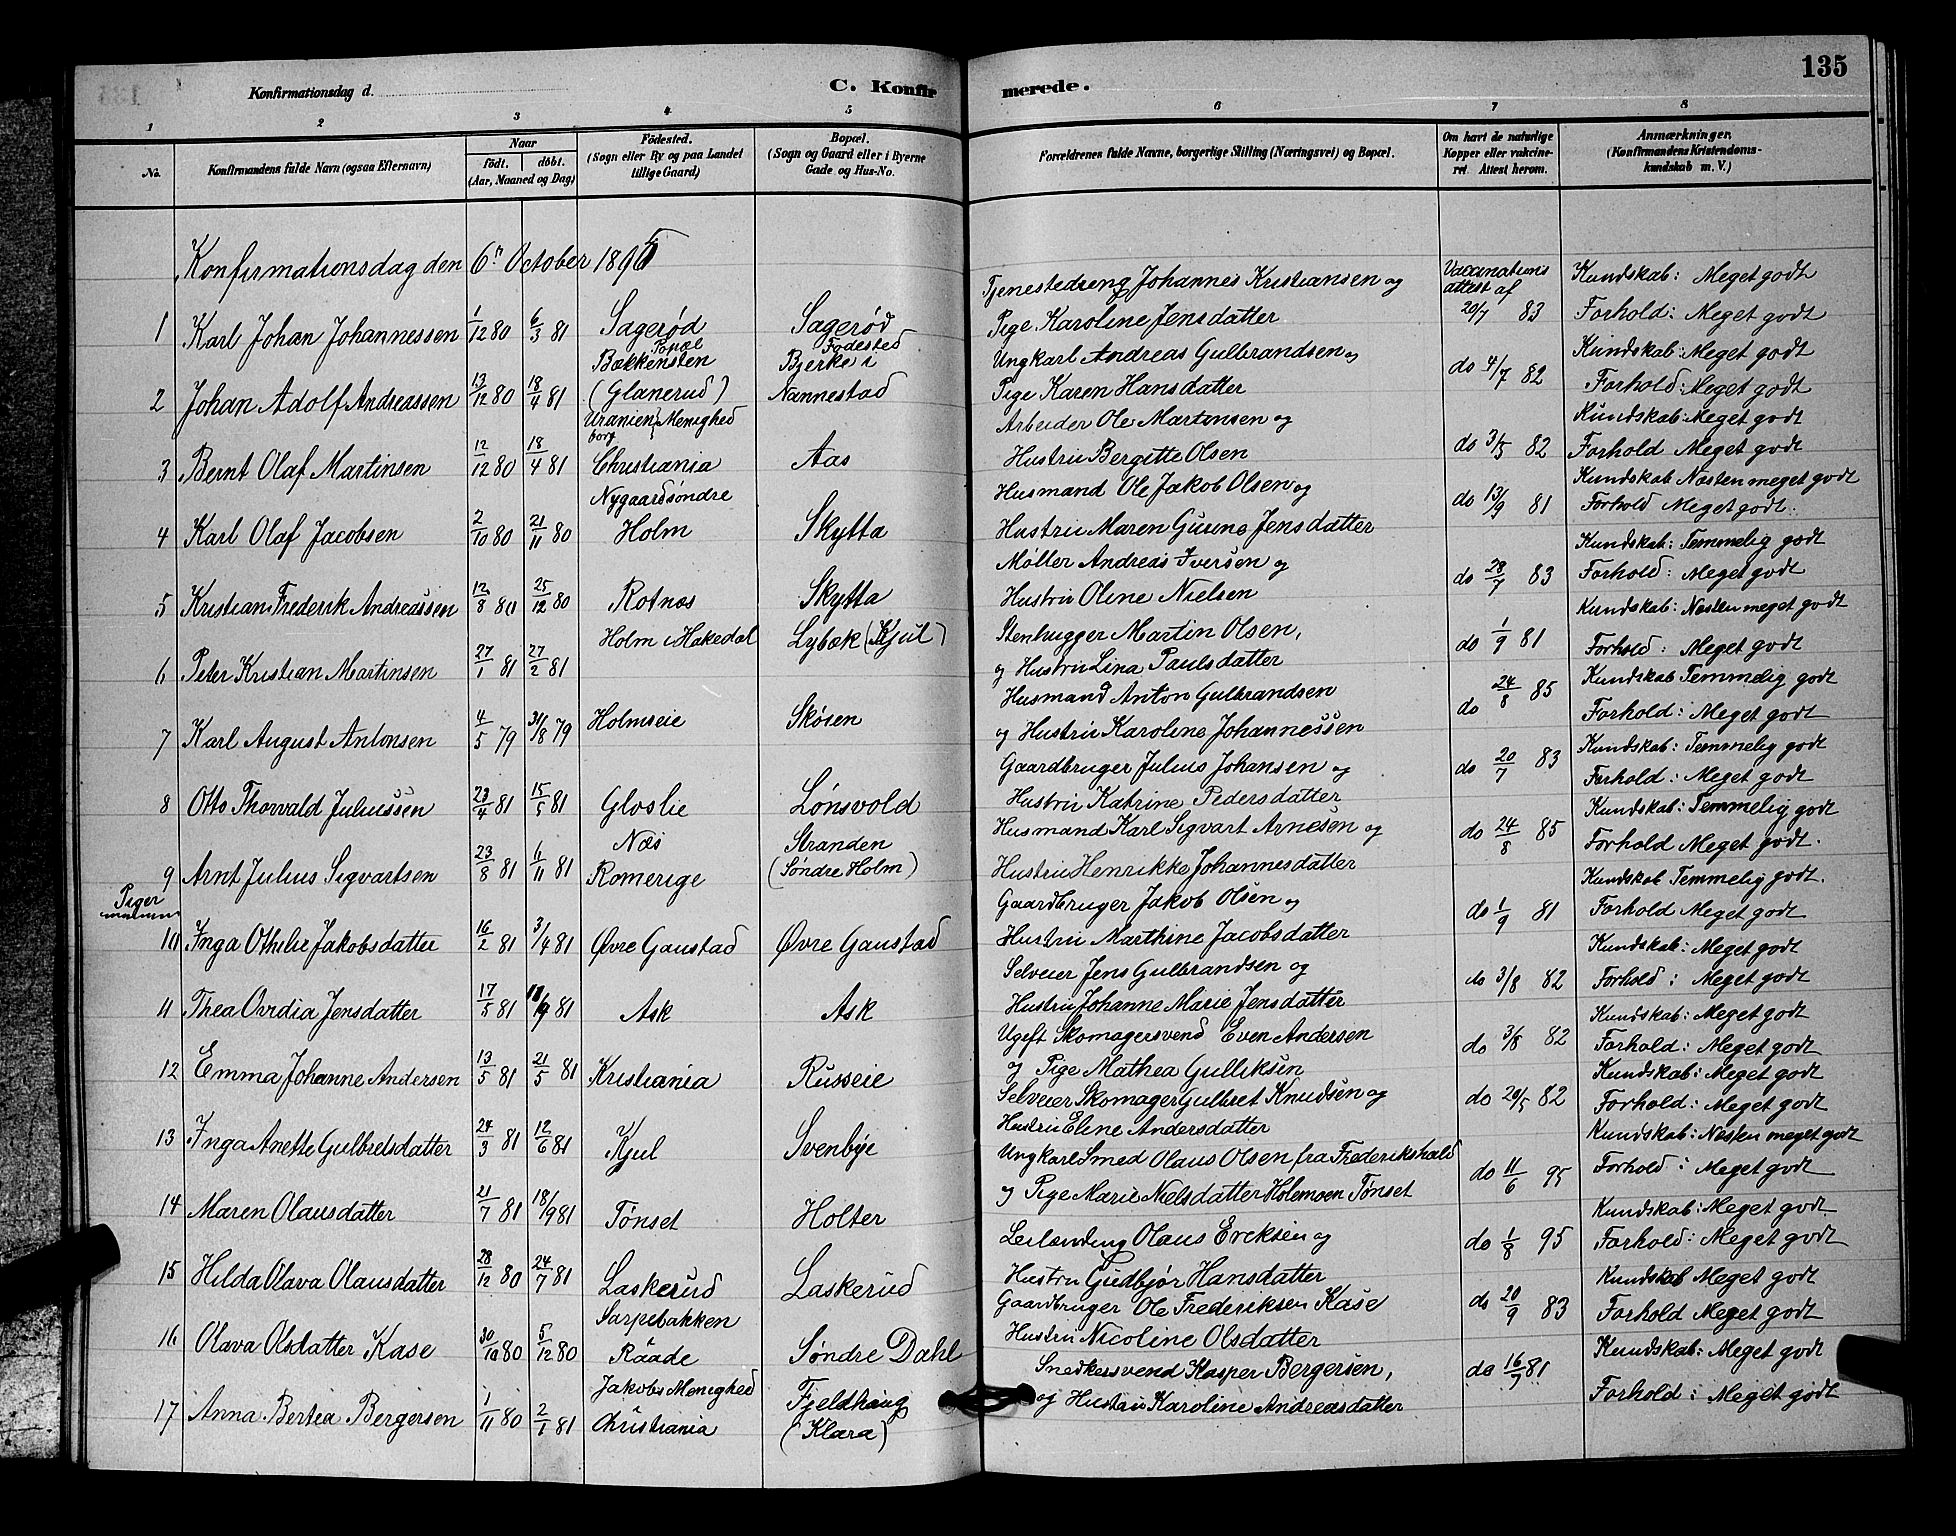 135
Konfirmationsdag d.
C. Konfirmerede.
1 2 3 4 5 6 7 8
No. Konfirmandens fulde Navn (ogsaa Efternavn) Naar født. døbt. (Aar, Maaned og Dag) Födested. (Sogn eller By og paa Landet tillige Gaard) Bopæl. (Sogn og Gaard eller i Byerne Gade og Hus-No. Forældrenes fulde Navne, borgerlige Stilling (Næringsvei) og Bopæl. Om havt de naturlige Kopper eller vakcineret. Attest herom. Anmærkninger. (Konfirmandens Kristendomskundskab m. V.)
Konfirmationsdag den 6te October 1895
1 Karl Johan Johannessen 1/12 80 6/3 81 Sagerød Sagerød Tjenestedreng Johannes Kristiansen og Pige Karoline Jensdatter Vaccinations attest af 20/7 83 Kundskab: Meget godt Forhold: Meget godt
2 Johan Adolf Andreassen 13/12 80 18/4 81 Bopæl Bakkensten (Glanerud) Fødested Bjerke i Nannestad Ungkarl Andreas Gulbrandsen og Pige Karen Hansdatter do 4/7 82 Kundskab: Meget godt Forhold: Meget godt
3 Bernt Olaf Martinsen 12/12 80 18/4 81 Uranienborg Menighed Christiania Aas Arbeider Ole Martinsen og Hustru Bergitte Olsen do 3/5 82 Kundskab: Meget godt Forhold Meget godt
4 Karl Olaf Jacobsen 2/10 80 21/11 80 Nygaard søndre Holm Skytta Husmand Ole Jakob Olsen og Hustru Maren Gurine Jensdatter do 13/9 81 Kundskab Næsten meget godt Forhold Meget godt.
5 Kristian Frederik Andreassen 12/8 80 25/12 80 Rotnes Skytta Møller Andreas Iversen og Hustru Oline Nielsen do 28/7 83 Kundskab: Temmelig godt Forhold: Meget godt
6 Peter Kristian Martinsen 27/1 81 27/2 81 Holm i Hakedal Lybæk (Kjul) Stenhugger Martin Olsen, og Hustru Lina Paulsdatter do 1/9 81 Kundskab: Næsten meget godt Forhold: Meget godt
7 Karl August Antonsen 4/5 79 31/8 79 Holmseie Skøien Husmand Anton Gulbrandsen og Hustru Karoline Johannessen do 24/8 85 Kundskab Temmelig godt Forhold: Meget godt
8 Otto Thorvald Juliussen 23/4 81 15/5 81 Gloslie Lønsvold Gaardbruger Julius Johansen og Hustru Katrine Pedersdatter do 20/7 83 Kundskab: Temmelig godt Forhold: Meget godt
9 Arnt Julius Sigvartsen 23/8 81 6/11 81 Næs Romerige Stranden (Søndre Holm) Husmand Karl Sigvart Arnesen og Hustru Henrikke Johannesdatter do 24/8 85 Kundskab: Temmelig godt Forhold Meget godt.
Piger
10 Inga Othilie Jakobsdatter 16/2 81 3/4 81 Øvre Gaustad Øvre Gaustad Gaardbruger Jakob Olsen og Hustru Marthine Jacobsdatter do 1/9 81 Kundskab Temmelig godt. Forhold Meget godt
11 Thea Ovidia Jensdatter 17/5 81 11/9 81 Ask Ask Selveier Jens Gulbrandsen og Hustru Johanne Marie Jensdatter do 3/8 82 Kundskab: Meget godt Forhold: Meget godt
12 Emma Johanne Andersen 13/5 81 21/5 81 Kristiania Russeie Ugift Skomagersvend Even Andersen og Pige Mathea Gulliksen do 3/8 82 Kundskab: Meget godt Forhold: Meget godt
13 Inga Anette Gulbretsdatter 24/3 81 12/6 81 Kjul Svenbye Selveier Skomager Gulbret Knudsen og Hustru Eline Andersdatter do 20/5 82 Kundskab: Meget godt Forhold: Meget godt
14 Maren Olausdatter 21/7 81 18/9 81 Tønset Holter Ungkarl Smed Olaus Olsen fra Frederikshald og Pige Marie Nielsdatter Holemoen Tønset do 11/6 95 Kundskab: Næsten meget godt Forhold: Meget godt
15 Hilda Olava Olausdatter 28/12 80 24/7 81 Laskerud Laskerud Leilænding Olaus Ericksen og Hustru Gudbjør Hansdatter do 1/8 95 Kundskab: Meget godt. Forhold: Meget godt
16 Olava Olsdatter Kase 30/10 80 5/12 80 Sarpebakken Raade Søndre Dahl Gaardbruger Ole Frederiksen Kase Hustru Nicoline Olsdatter do 20/9 83 Kundskab Meget godt Forhold Meget godt
17 Anna Bertea Bergersen 1/11 80 2/1 81 Jakobs Menighed Christiania Fjeldhaug (Klara) Snedkersvend Kasper Bergersen, og Hustru Karoline Andreasdatter do 16/7 81 Kundskab: Meget godt Forhold: Meget godt